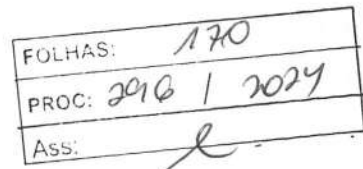 FOLHAS: 170
PROC: 296 / 2024
Ass: